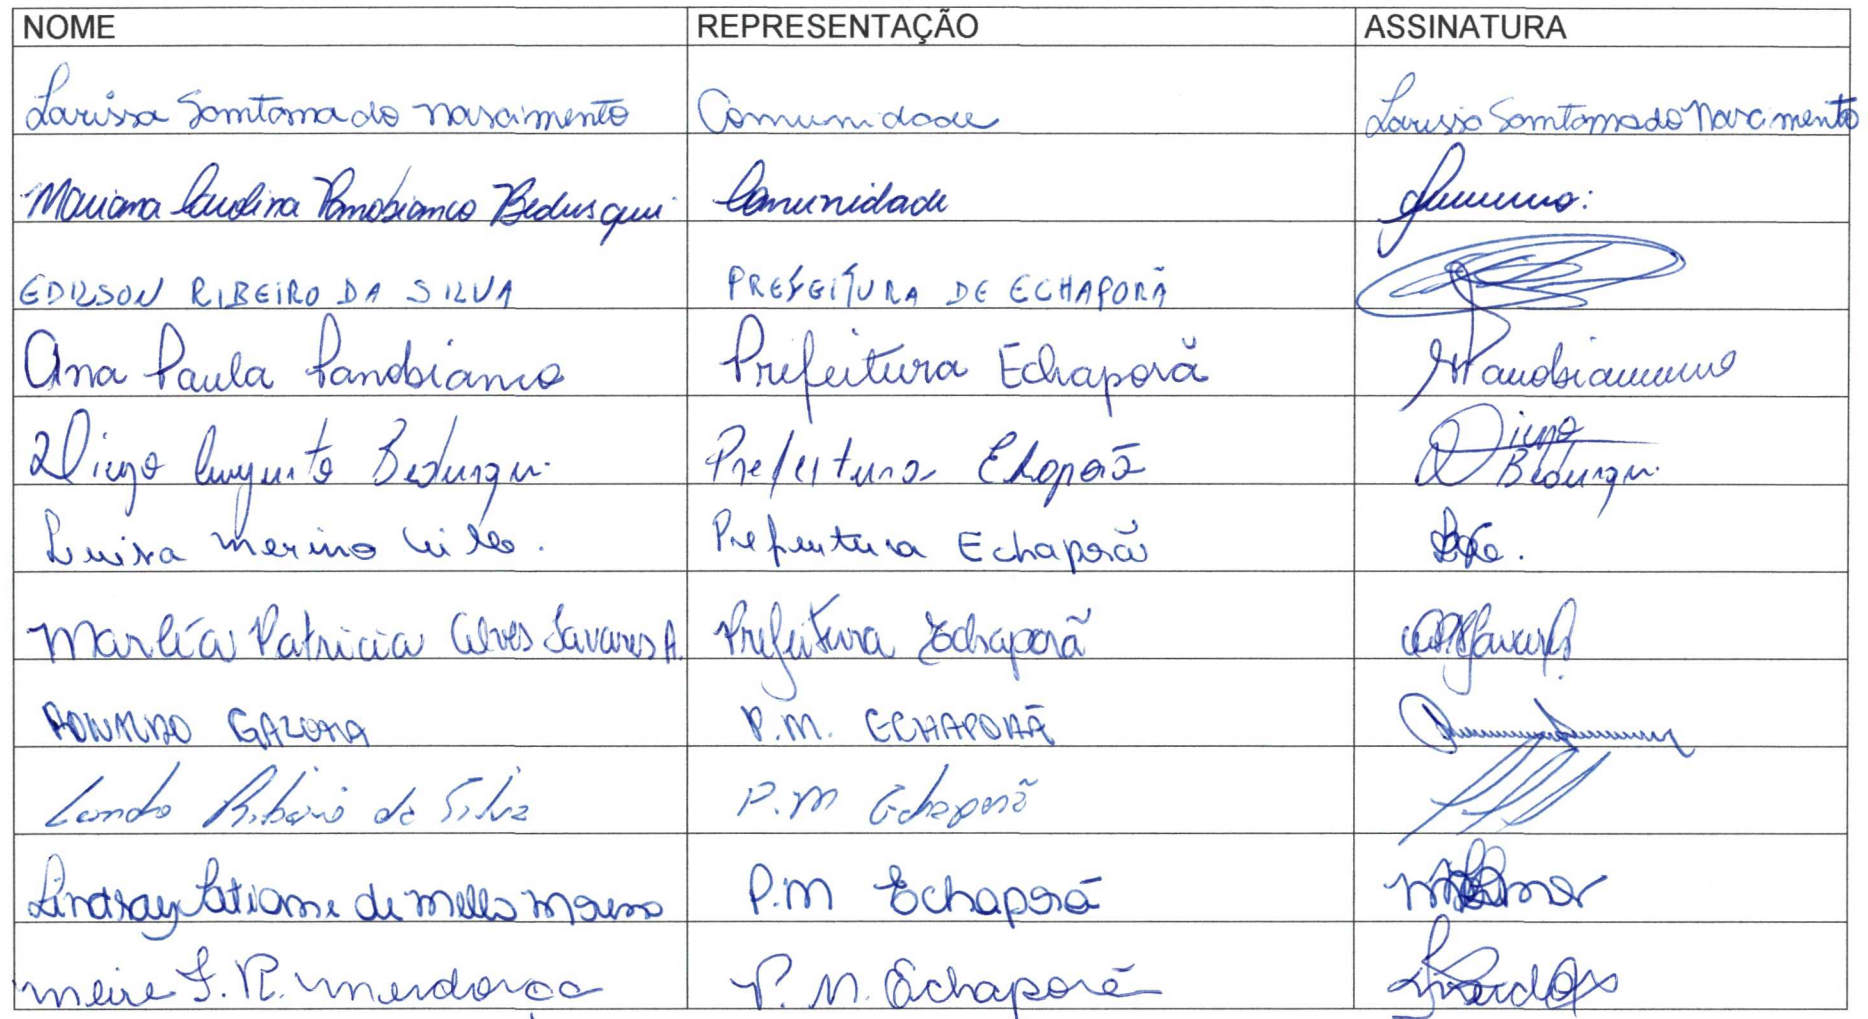 NOME REPRESENTAÇÃO ASSINATURA
Larissa Somtoma do nascimento Comunidade Larissa Somtoma do Nascimento
Mariana Carolina Panobianco Bedusqui Comunidade
EDILSON RIBEIRO DA SILVA PREFEITURA DE ECHAPORÃ
Ana Paula Panobianco Prefeitura Echaporã
Diego Augusto Bedusqui Prefeitura Echaporã Diego Bedusqui
Luisa Merino Prefeitura Echaporã
Marléa Patricia Alves Tavares A. Prefeitura Echaporã
P.M. ECHAPORÃ
Ribeiro da Silva P.M Echaporã
Lindsay Tatiane de Mello P.M Echaporã
Meire F. R. Mendonça P.M. Echaporã